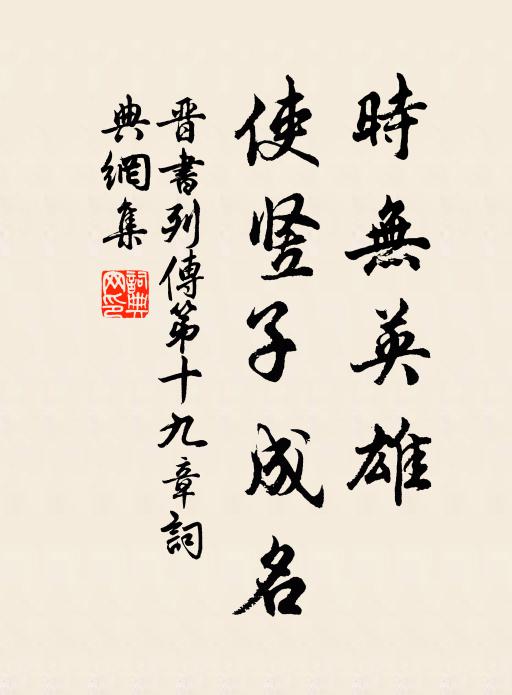 時無英雄
使豎子成名
晉書列傳第十九章詞
典網集
詞典
网印